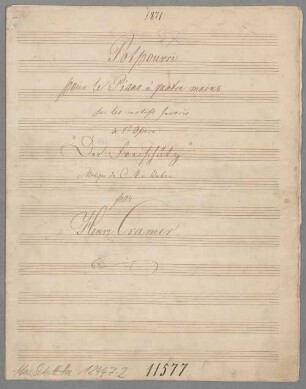 1871
Potpourri
pour le Piano à quatre mains
sur les motifs favoris
de l'Opera
"Der Freischütz"
Musique de C. M. v. Weber
par
Henri Cramer
11577